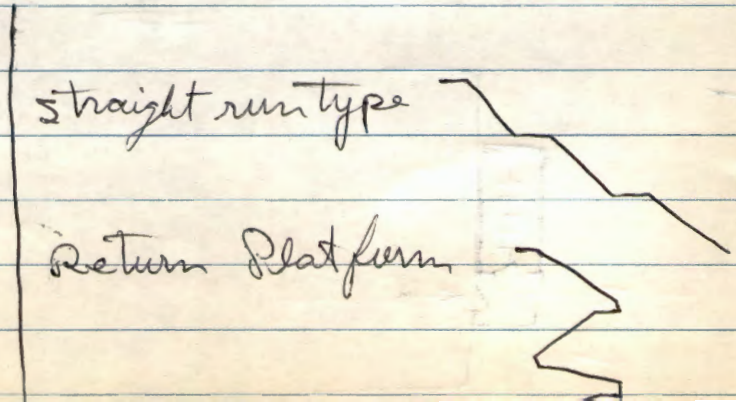 straight run type
Return Platform